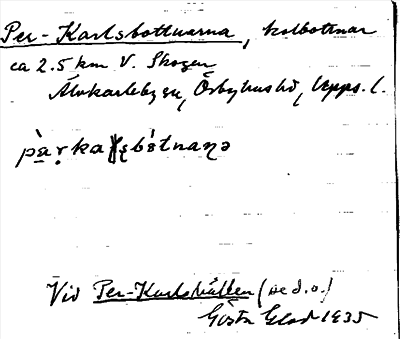 Per-Karlsbottnarna, kolbottnar
ca 2.5 km V. Skogen
Älvkarleby sn, Örbyhus hd, Upps. l.
Vid Per-Karlshällen (se d.o.)
Gösta Elad 1935